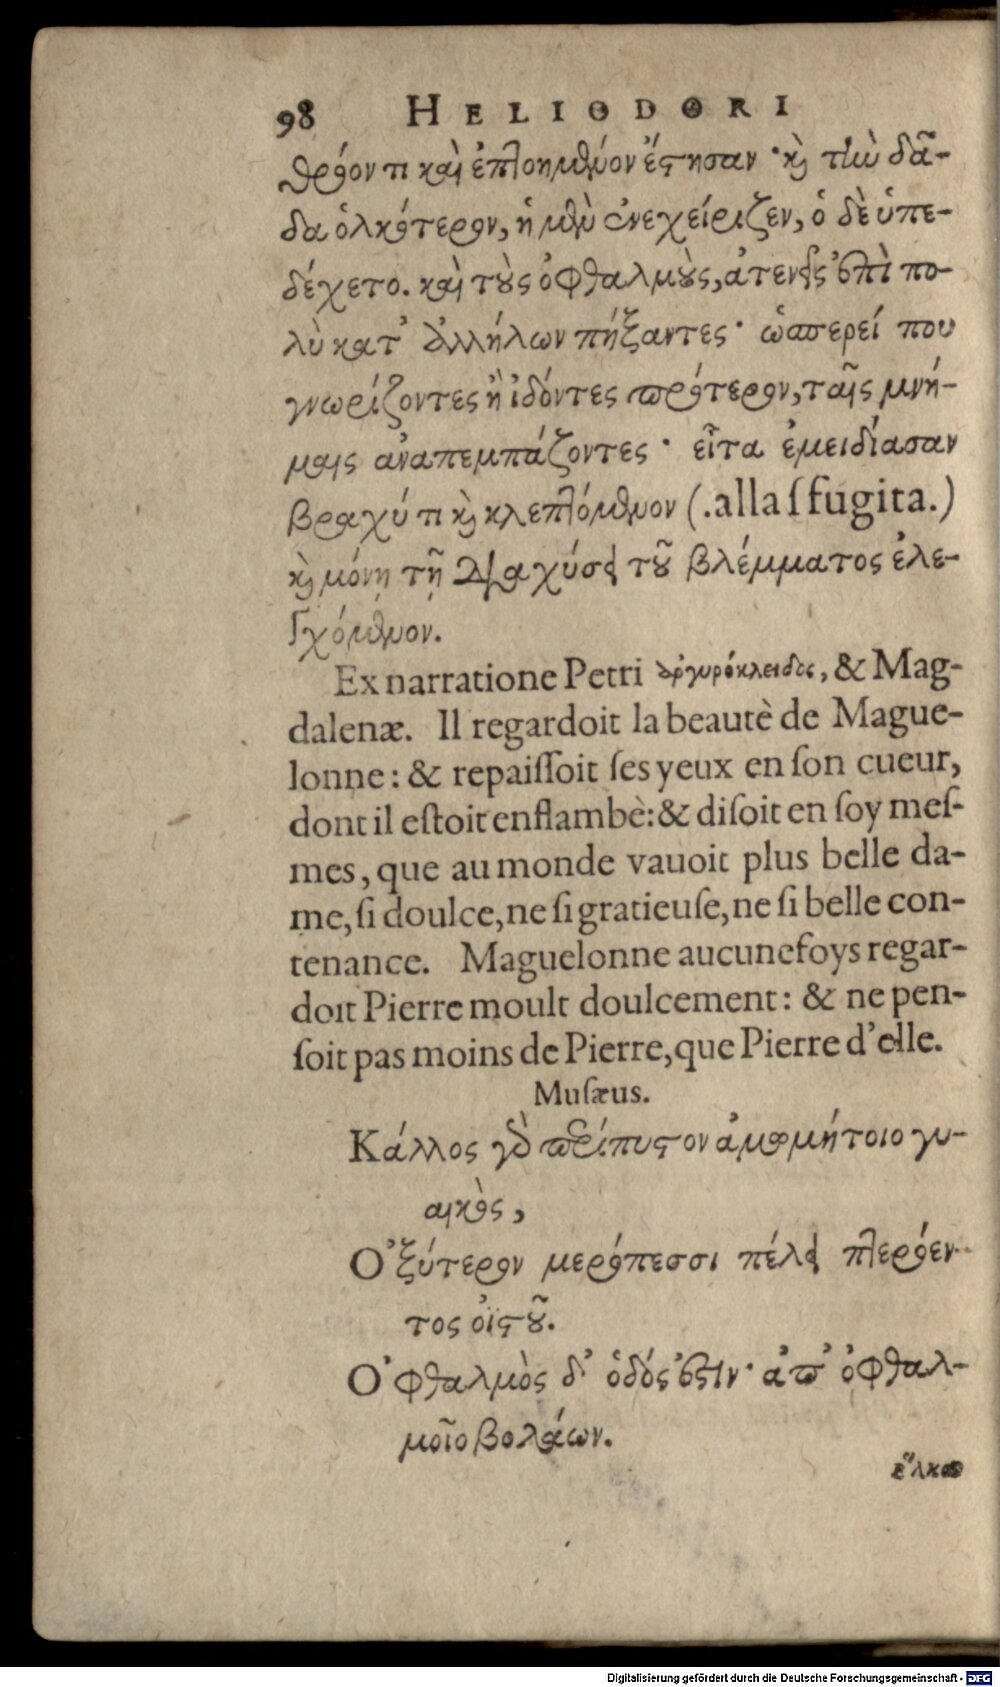 98 HELIODORI
θρόον τι καὶ ἐπτοημένον ἔστησαν· καὶ τὴν δᾷ-
δα ὁλκότερον, ἡ μὲν ἐνεχείριζεν, ὁ δὲ ὑπε-
δέχετο. καὶ τοὺς ὀφθαλμοὺς, ἀτενεῖς ἐπὶ πο-
λὺ κατ’ ἀλλήλων πήξαντες· ὥσπερεί που
γνωρίζοντες ἢ ἰδόντες πρότερον, ταῖς μνή-
μαις ἀναπεμπάζοντες· εἶτα ἐμειδίασαν
βραχύ τι καὶ κλεπτόμενον (.alla ſfugita.)
καὶ μόνῃ τῇ διαχύσει τοῦ βλέμματος ἐλε-
γχόμενον.
Ex narratione Petri ἀργυρόκλειδος, & Mag-
dalenæ. Il regardoit la beautè de Mague-
lonne: & repaiſſoit ſes yeux en ſon cueur,
dont il eſtoit enflambè: & diſoit en ſoy meſ-
mes, que au monde vauoit plus belle da-
me, ſi doulce, ne ſi gratieuſe, ne ſi belle con-
tenance. Maguelonne aucunefoys regar-
doit Pierre moult doulcement: & ne pen-
ſoit pas moins de Pierre, que Pierre d’elle.
Muſæus.
Κάλλος γὰρ περίπυστον ἀμωμήτοιο γυ-
αικὸς,
Ο᾽ξύτερον μερόπεσσι πέλει πτερόεν-
τος ὀϊστοῦ.
Ο᾽φθαλμὸς δ’ ὁδός ἐστιν· ἀπ’ ὀφθαλ-
μοῖο βολάων.
ἕλκος